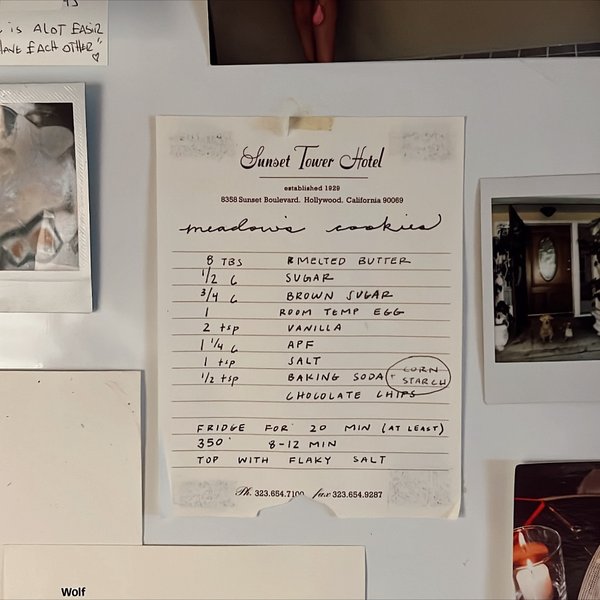 is ALOT EASIR
HAVE EACH OTHER"
Sunset Tower Hotel
established 1929
8358 Sunset Boulevard, Hollywood, California 90069
meadow's cookies
8 TBS MELTED BUTTER
1/2 C SUGAR
3/4 C BROWN SUGAR
1 ROOM TEMP EGG
2 tsp VANILLA
1 1/4 C APF
1 tsp SALT
1/2 tsp BAKING SODA + CORN STARCH
CHOCOLATE CHIPS
FRIDGE FOR 20 MIN (AT LEAST)
350° 8-12 MIN
TOP WITH FLAKY SALT
Ph. 323.654.7100 fax 323.654.9287
Wolf